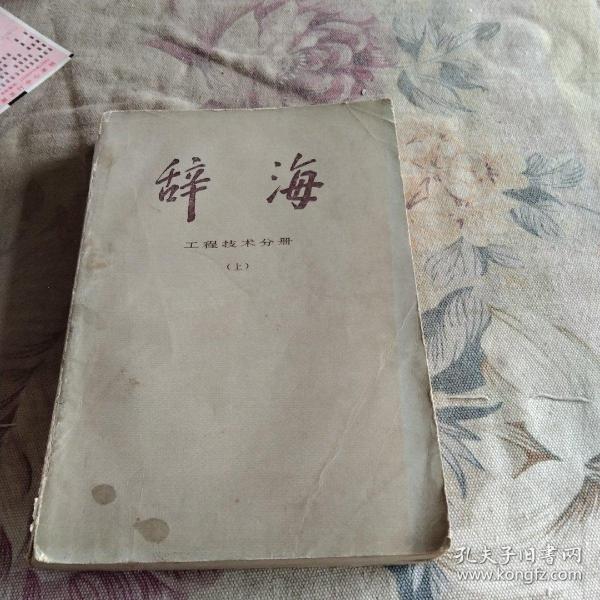 辞海
工程技术分册
（上）
孔夫子旧书网
www.kongfz.com